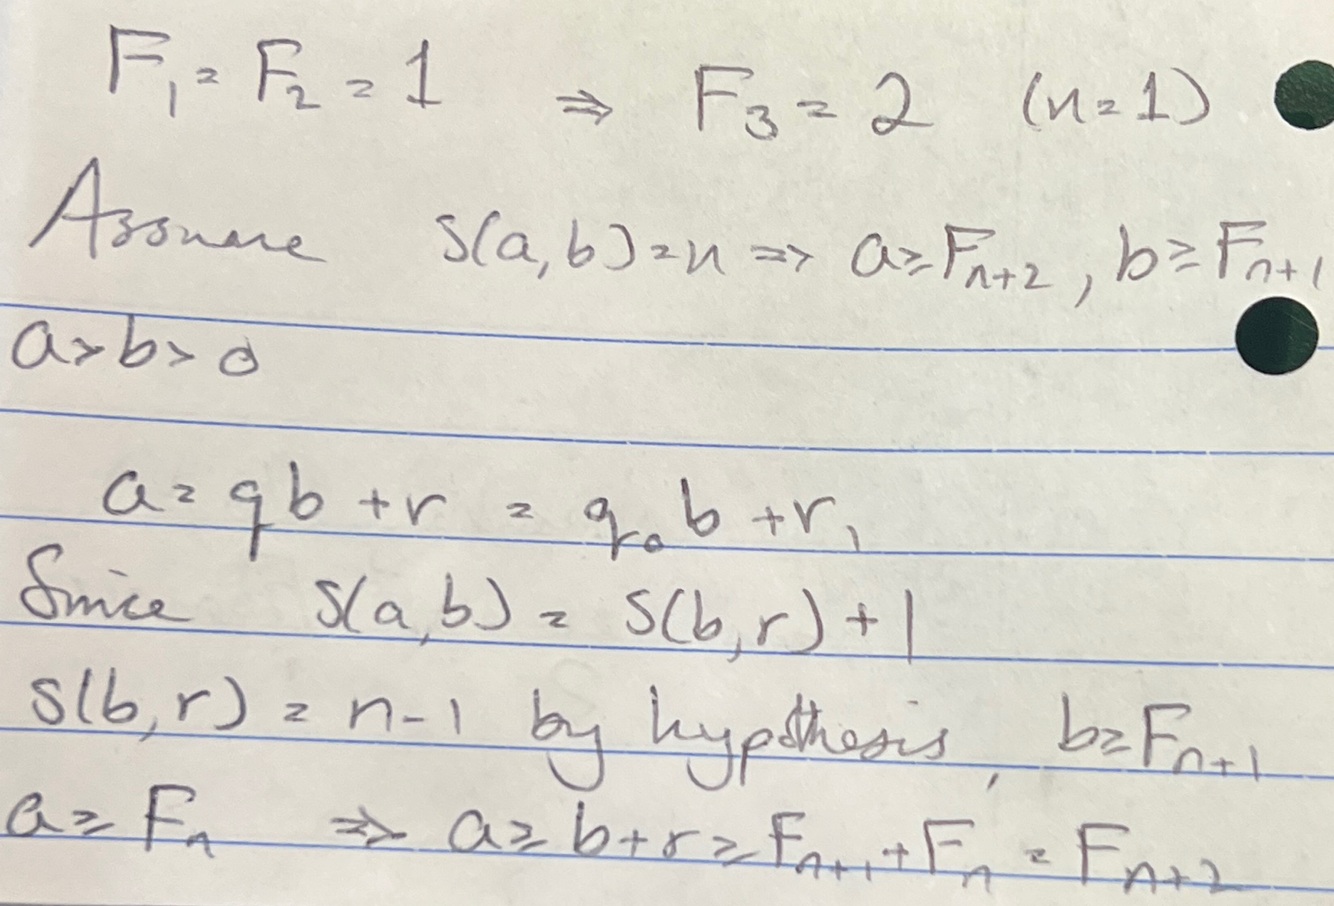 F₁ = F₂ = 1 ⇒ F₃ = 2 (n=1)
Assume S(a,b)=n ⇒ a≥Fₙ₊₂, b≥Fₙ₊₁
a>b>0
a = qb + r = q₀b + r₁
Since S(a,b) = S(b,r) + 1
S(b,r) = n-1 by hypothesis, b≥Fₙ₊₁
a≥Fₙ ⇒ a≥b+r≥Fₙ₊₁+Fₙ = Fₙ₊₂